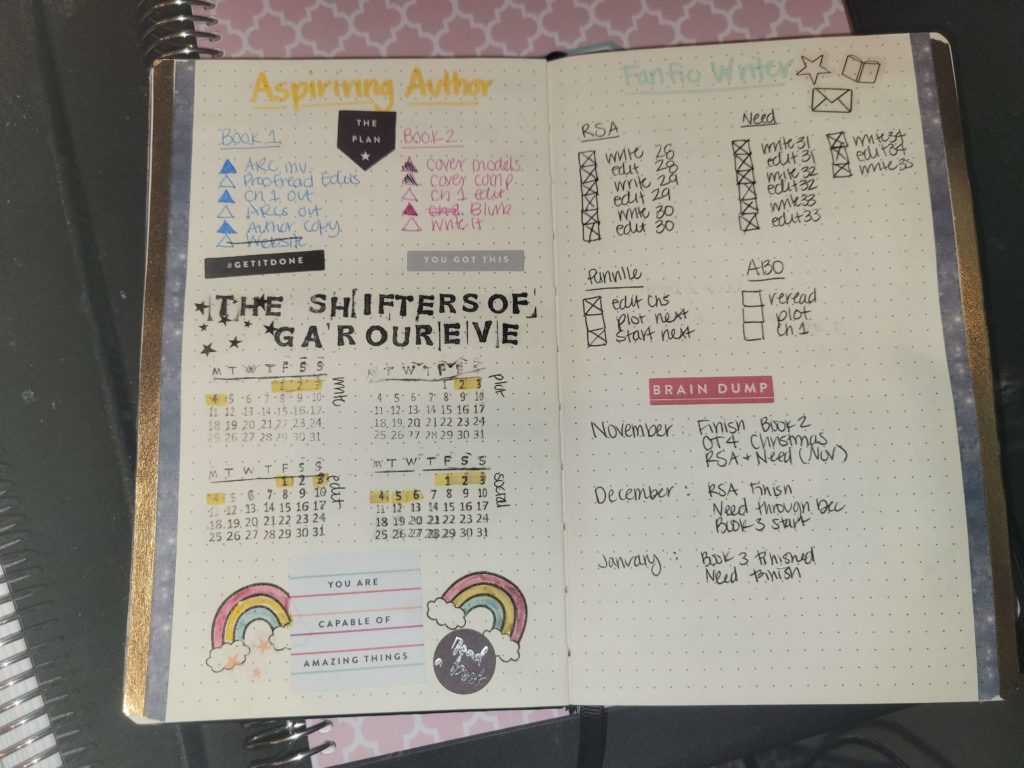 Aspiriring Author
THE
PLAN
Book 1
ARC inv.
Proofread Edits
Ch 1 out
ARCs out
Author copy
Website
#GETITDONE
Book 2
Cover models
Cover comp.
Ch 1 edit
Ch 2 Blurb
Write it
YOU GOT THIS
THE SHIFTERS OF
GAROUREVE
M T W T F S S
1 2 3
4 5 6 7 8 9 10
11 12 13 14 15 16 17
18 19 20 21 22 23 24
25 26 27 28 29 30 31
write
M T W T F S S
1 2 3
4 5 6 7 8 9 10
11 12 13 14 15 16 17
18 19 20 21 22 23 24
25 26 27 28 29 30 31
plot
M T W T F S S
1 2 3
4 5 6 7 8 9 10
11 12 13 14 15 16 17
18 19 20 21 22 23 24
25 26 27 28 29 30 31
edit
M T W T F S S
1 2 3
4 5 6 7 8 9 10
11 12 13 14 15 16 17
18 19 20 21 22 23 24
25 26 27 28 29 30 31
social
YOU ARE
CAPABLE OF
AMAZING THINGS
Read
Fanfic Writer
RSA
write 28
edit 28
write 29
edit 29
write 30
edit 30
Need
write 31
edit 31
write 32
edit 32
write 33
edit 33
write 34
edit 34
write 35
edit ch5
plot next
start next
ABO
reread
plot
ch. 1
BRAIN DUMP
November: Finish Book 2
OT4 Christmas
RSA + Need (Nov)
December: RSA Finish
Need through Dec.
Book 3 start
January: Book 3 Finished
Need Finish